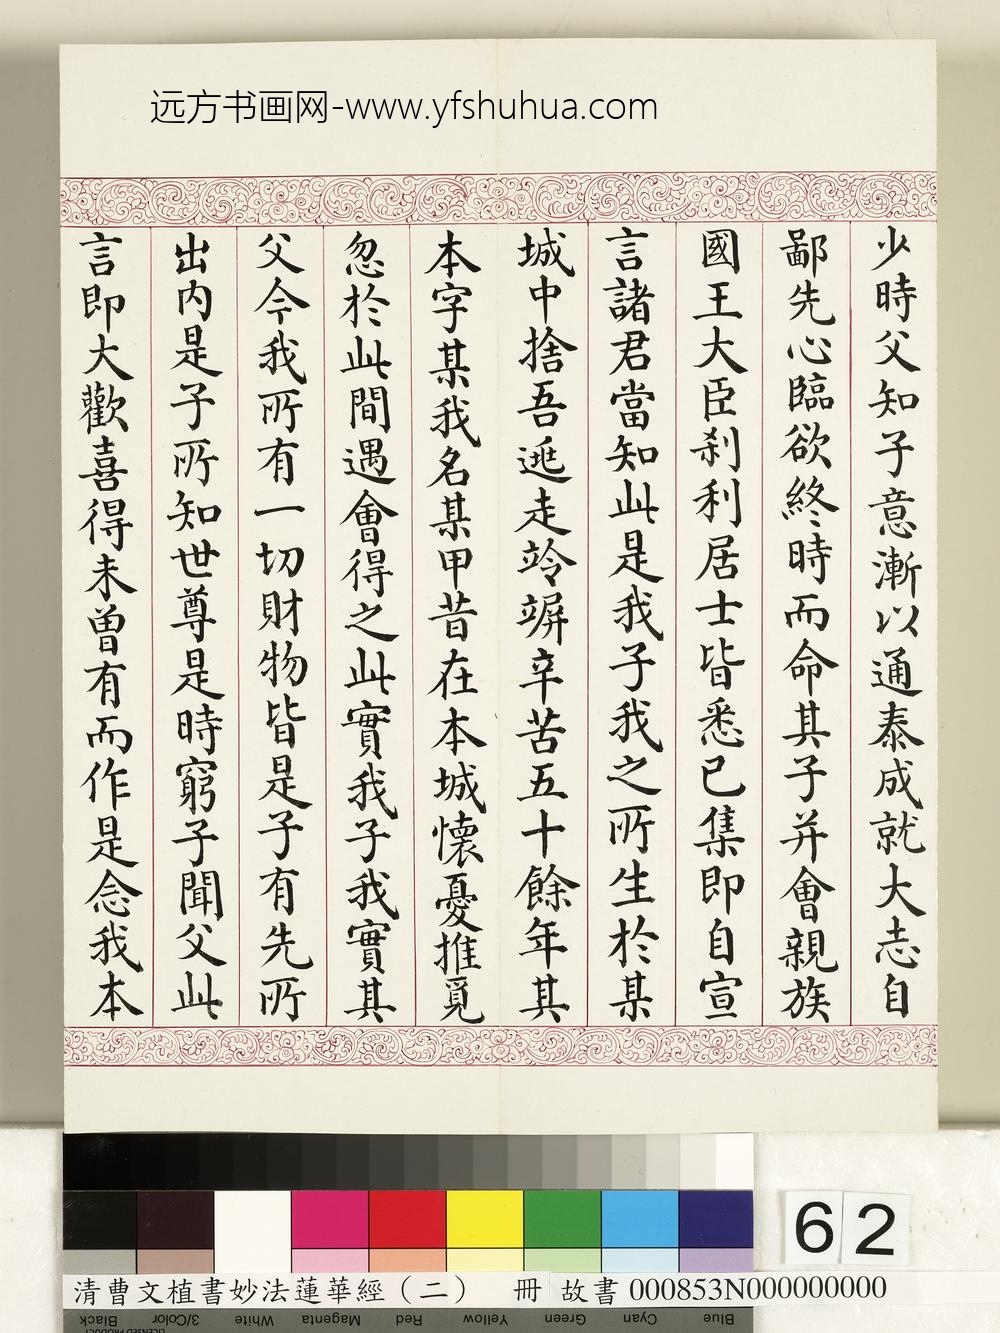 远方书画网-www.yfshuhua.com
少時父知子意漸以通泰成就大志自
鄙先心臨欲終時而命其子并會親族
國王大臣刹利居士皆悉已集即自宣
言諸君當知此是我子我之所生於某
城中捨吾逃走竛竮辛苦五十餘年其
本字某我名某甲昔在本城懷憂推覓
忽於此間遇會得之此實我子我實其
父今我所有一切財物皆是子有先所
出内是子所知世尊是時窮子聞父此
言即大歡喜得未曾有而作是念我本
62
清曹文植書妙法蓮華經（二） 冊 故書000853N000000000
Blue Cyan Green Yellow Red Magenta White 3/Color Black